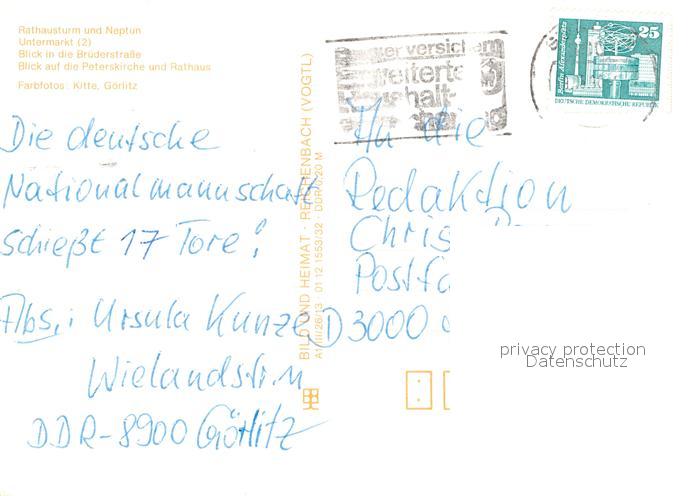 Rathausturm und Neptun
Untermarkt (2)
Blick in die Brüderstraße
Blick auf die Peterskirche und Rathaus
Farbfotos: Kitte, Görlitz
Die deutsche
Nationalmannschaft
schießt 17 Tore!
Abs.: Ursula Kunze
Wielandstr. 11
DDR-8900 Görlitz
BILD UND HEIMAT · REICHENBACH (VOGTL)
01 12 1553/32 · DDR 0,20 M
versichern
Berlin, Alexanderplatz
25
DEUTSCHE DEMOKRATISCHE REPUBLIK
An die
Redaktion
Chris
Postfa
D 3000
privacy protection
Datenschutz